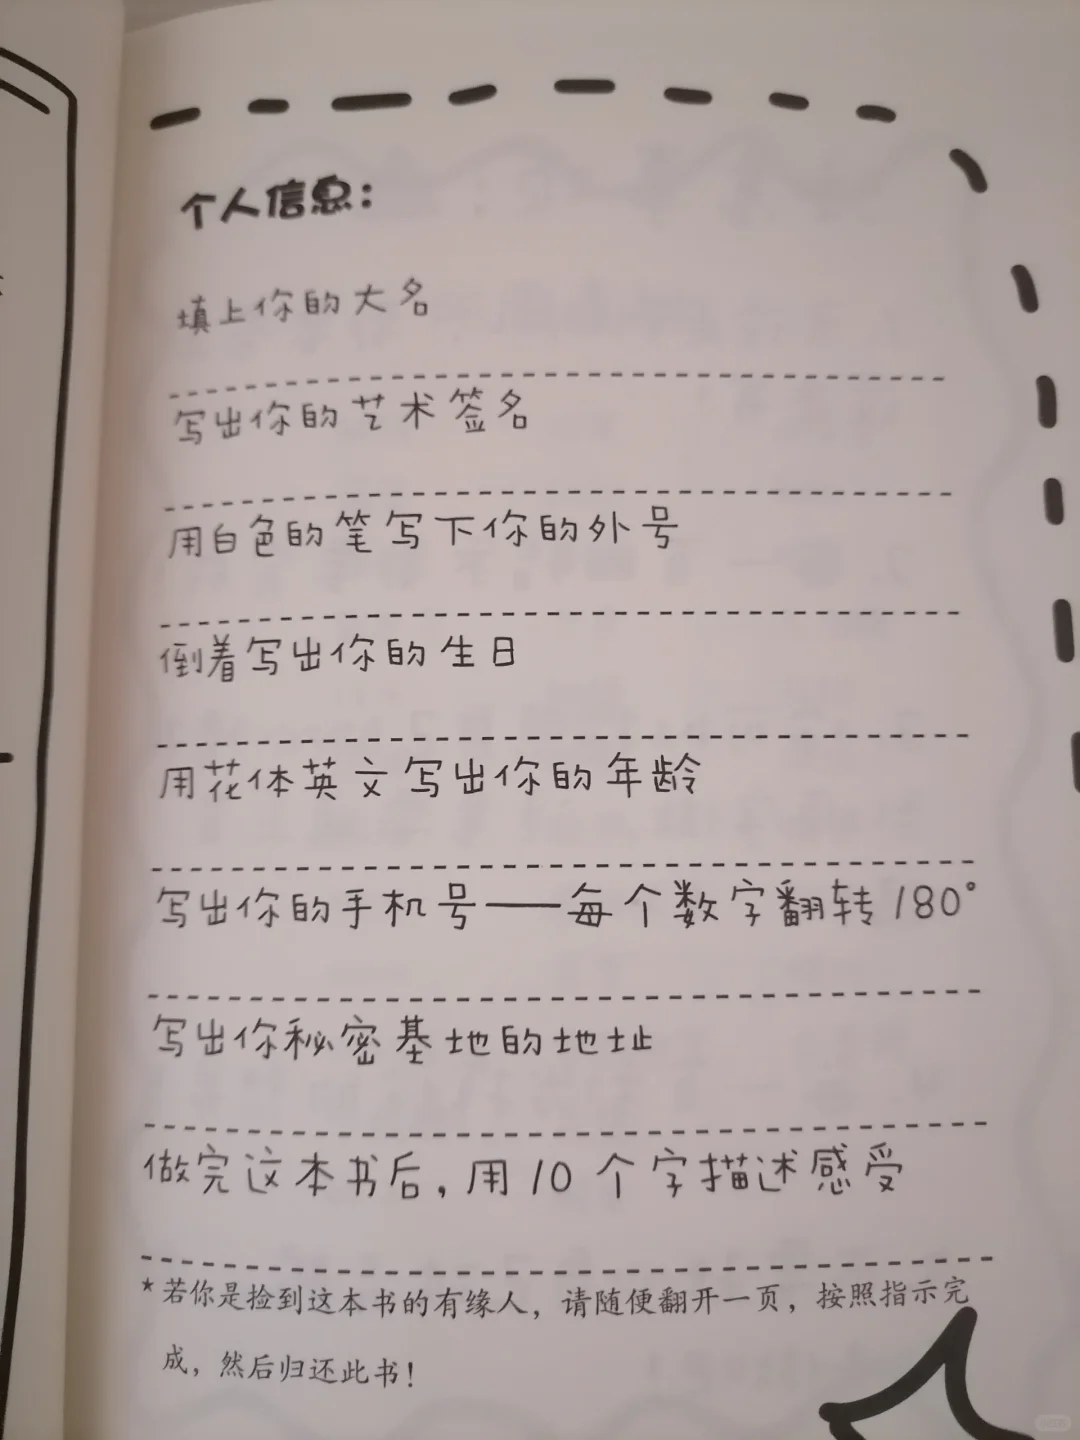 个人信息：
填上你的大名
写出你的艺术签名
用白色的笔写下你的外号
倒着写出你的生日
用花体英文写出你的年龄
写出你的手机号——每个数字翻转180°
写出你秘密基地的地址
做完这本书后，用10个字描述感受
*若你是捡到这本书的有缘人，请随便翻开一页，按照指示完
成，然后归还此书！